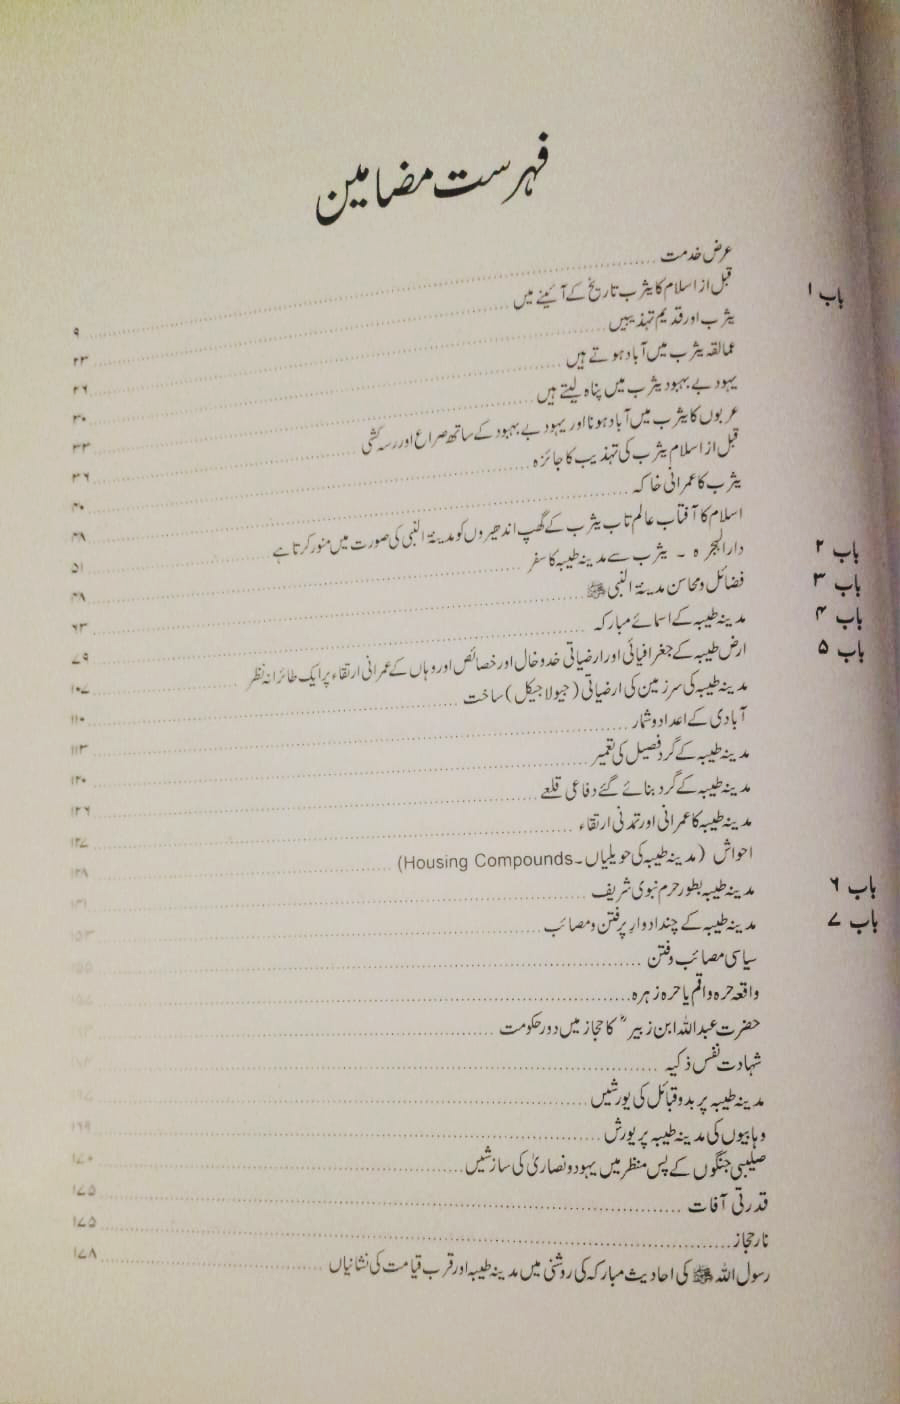 فہرست مضامین
عرض خدمت ۹
باب ۱ قبل از اسلام کا یثرب تاریخ کے آئینے میں ۲۳
یثرب اور قدیم تہذیبیں ۲۶
عمالقہ یثرب میں آباد ہوتے ہیں ۳۰
یہود بے بہبود یثرب میں پناہ لیتے ہیں ۳۳
عربوں کا یثرب میں آباد ہونا اور یہود بے بہبود کے ساتھ صراع اور رسہ کشی ۳۶
قبل از اسلام یثرب کی تہذیب کا جائزہ ۴۰
یثرب کا عمرانی خاکہ ۴۸
باب ۲ اسلام کا آفتاب عالم تاب یثرب کے گھپ اندھیروں کو مدینۃ النبی کی صورت میں منور کرتا ہے ۵۱
باب ۳ دارالہجرہ ۔ یثرب سے مدینہ طیبہ کا سفر ۴۸
باب ۴ فضائل و محاسن مدینۃ النبی ﷺ ۶۳
باب ۵ مدینہ طیبہ کے اسمائے مبارکہ ۷۹
ارض طیبہ کے جغرافیائی اور ارضیاتی خدوخال اور خصائص اور وہاں کے عمرانی ارتقاء پر ایک طائرانہ نظر ۱۰۷
مدینہ طیبہ کی سرزمین کی ارضیاتی (جیولاجیکل) ساخت ۱۱۰
آبادی کے اعداد و شمار ۱۱۳
مدینہ طیبہ کے گرد فصیل کی تعمیر ۱۲۰
مدینہ طیبہ کے گرد بنائے گئے دفاعی قلعے ۱۲۶
مدینہ طیبہ کا عمرانی اور تمدنی ارتقاء ۱۲۷
احواش (مدینہ طیبہ کی حویلیاں۔Housing Compounds) ۱۲۸
باب ۶ مدینہ طیبہ بطور حرم نبوی شریف ۱۳۱
باب ۷ مدینہ طیبہ کے چند ادوار پرفتن و مصائب ۱۵۳
سیاسی مصائب و فتن ۱۵۵
واقعہ حرہ واقم یا حرہ زہرہ
حضرت عبداللہ ابن زبیرؓ کا حجاز میں دور حکومت
شہادت نفس ذکیہ
مدینہ طیبہ پر بدو قبائل کی یورشیں
وہابیوں کی مدینہ طیبہ پر یورش ۱۶۹
صلیبی جنگوں کے پس منظر میں یہود و نصاریٰ کی سازشیں ۱۷۰
قدرتی آفات ۱۷۵
نار حجاز ۱۷۵
رسول اللہ ﷺ کی احادیث مبارکہ کی روشنی میں مدینہ طیبہ اور قرب قیامت کی نشانیاں ۱۷۸